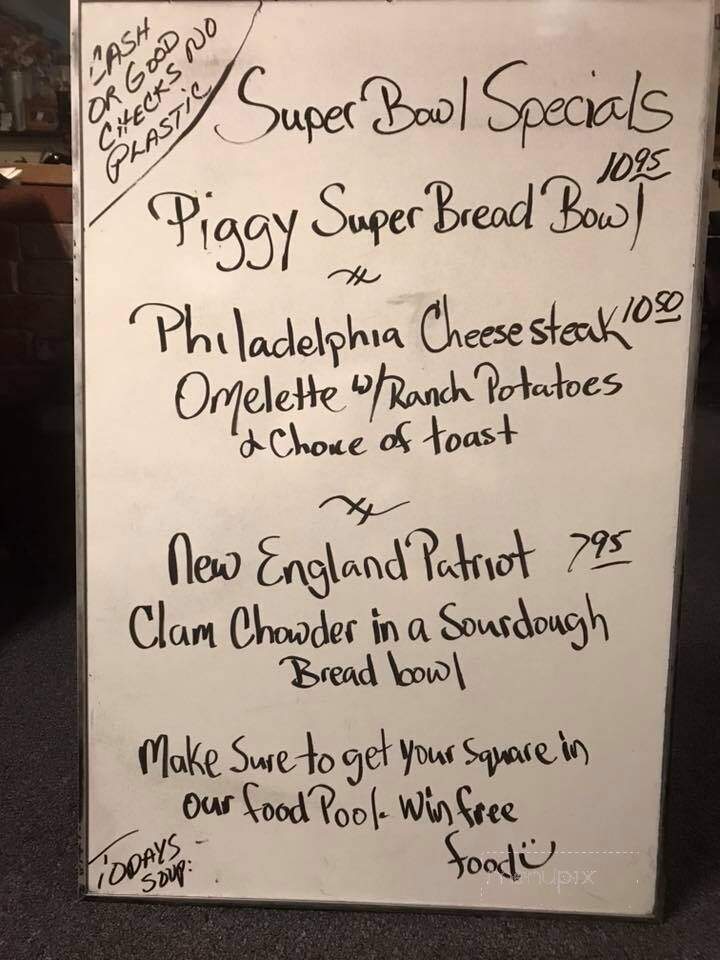 CASH
OR GOOD
CHECKS NO
PLASTIC
Super Bowl Specials
10 95
Piggy Super Bread Bowl
Philadelphia Cheesesteak 10 50
Omelette w/Ranch Potatoes
& Choice of toast
New England Patriot 7 95
Clam Chowder in a Sourdough
Bread bowl
Make Sure to get your Square in
our food Pool- Win free
food
TODAYS
SOUP:
menupix